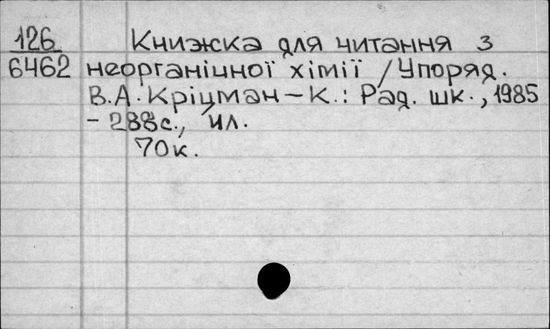 126 Книжка для читання з
6462 неорганічної хімії / Упоряд.
В.А. Кріцман – К.: Рад. шк., 1985
– 288с., ил.
70к.